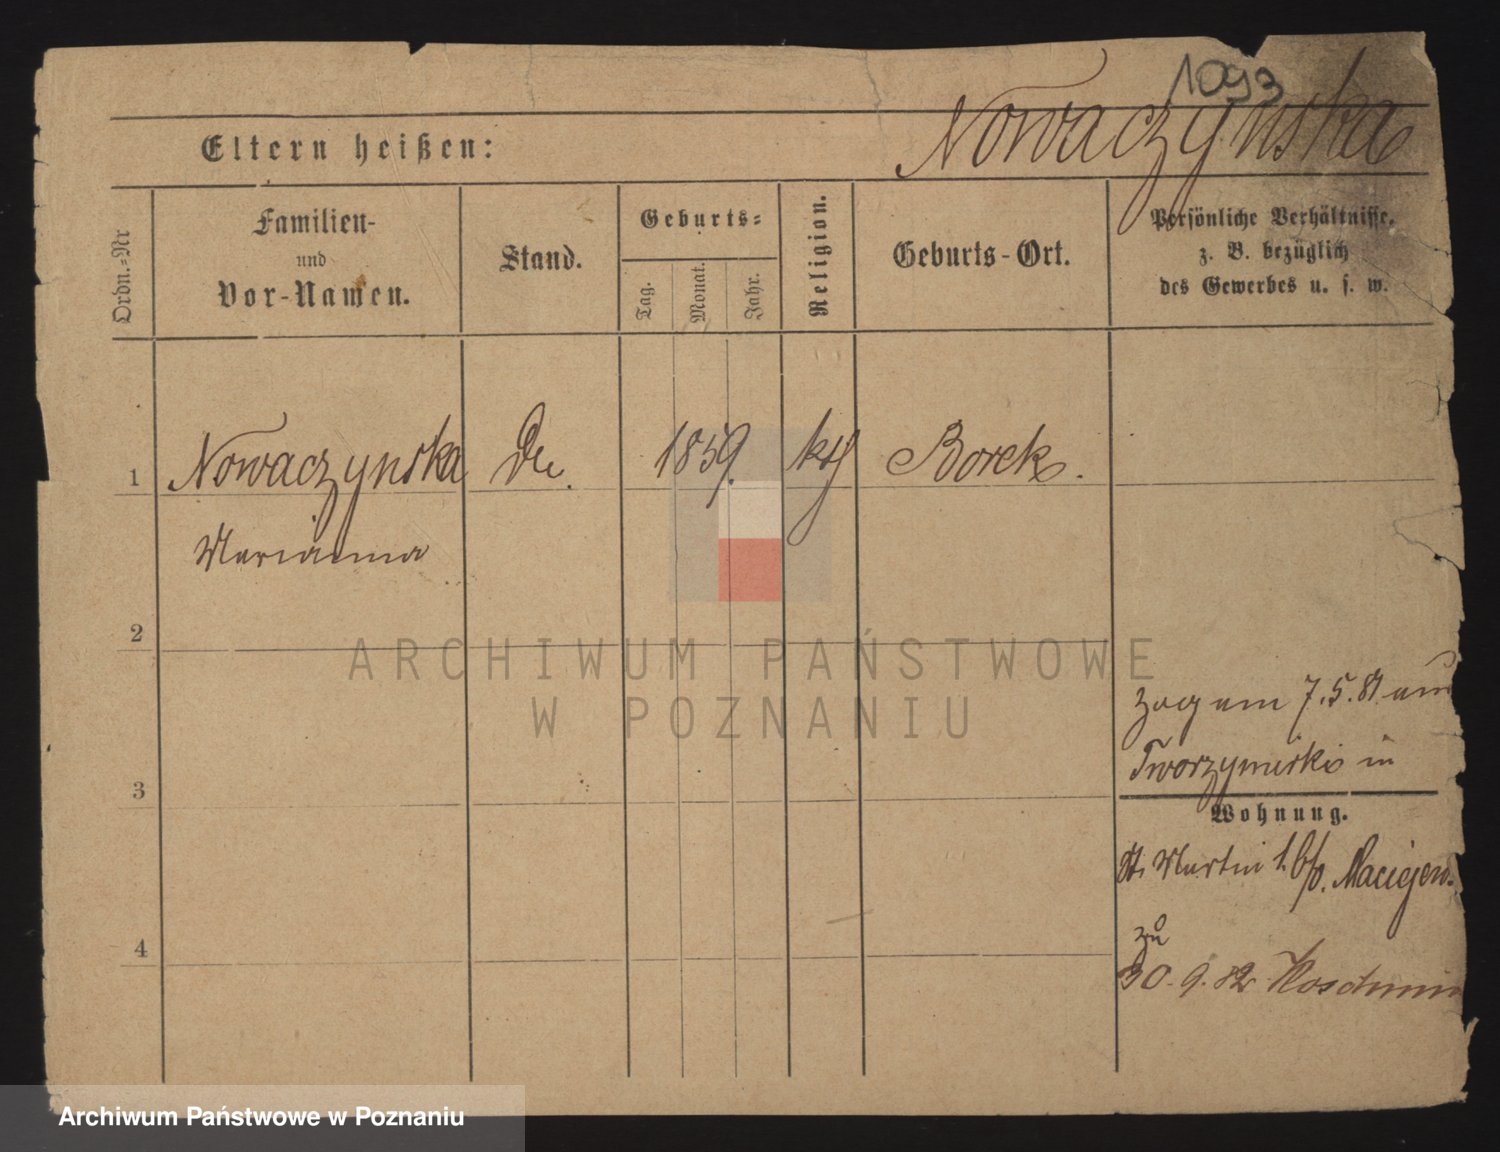 1093
Nowaczynska
Eltern heißen:
Ordn.-Nr
Familien-
und
Vor-Namen.
Stand.
Geburts-
Tag.
Monat.
Jahr.
Religion.
Geburts-Ort.
Persönliche Verhältnisse,
z. B. bezüglich
des Gewerbes u. s. w.
1 Nowaczynska 1859. kth Borek.
Marianna
2
ARCHIWUM PAŃSTWOWE
W POZNANIU
zog am 7.5.81 aus
in
3
Wohnung.
St. Martin 1. b/p. Maciejew.
4
zu
30.9.82 Koschmin
Archiwum Państwowe w Poznaniu